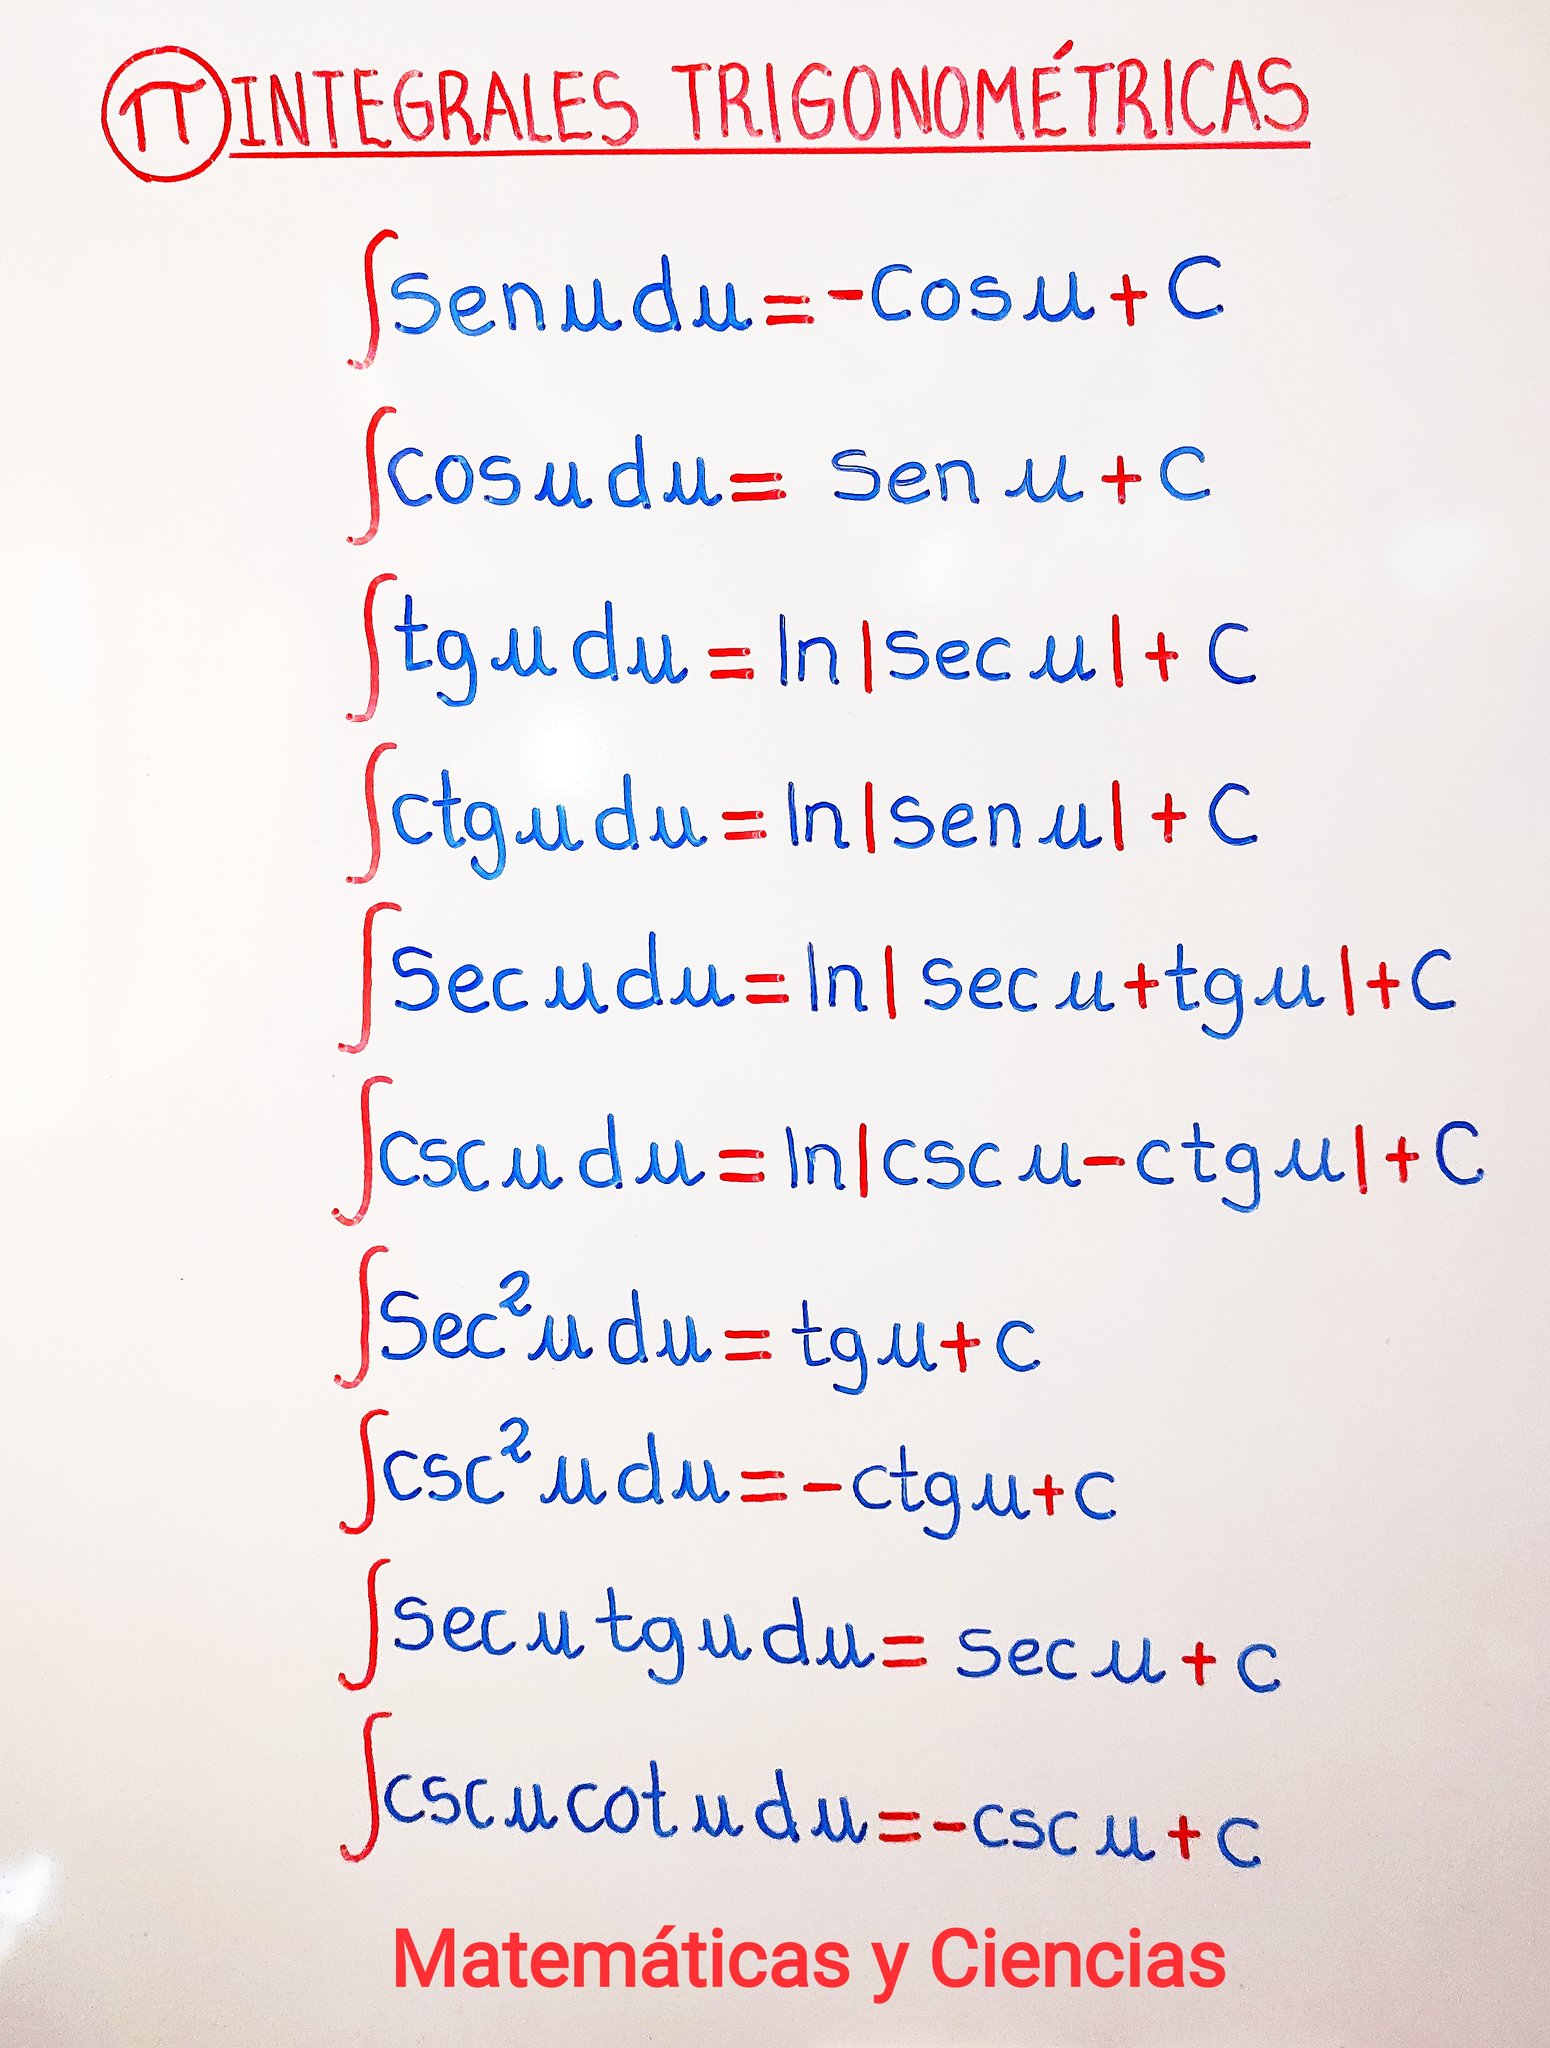 π INTEGRALES TRIGONOMÉTRICAS
∫sen u du = -cos u + C
∫cos u du = sen u + C
∫tg u du = ln|sec u| + C
∫ctg u du = ln|sen u| + C
∫sec u du = ln|sec u + tg u| + C
∫csc u du = ln|csc u - ctg u| + C
∫sec² u du = tg u + c
∫csc² u du = -ctg u + c
∫sec u tg u du = sec u + c
∫csc u cot u du = -csc u + c
Matemáticas y Ciencias